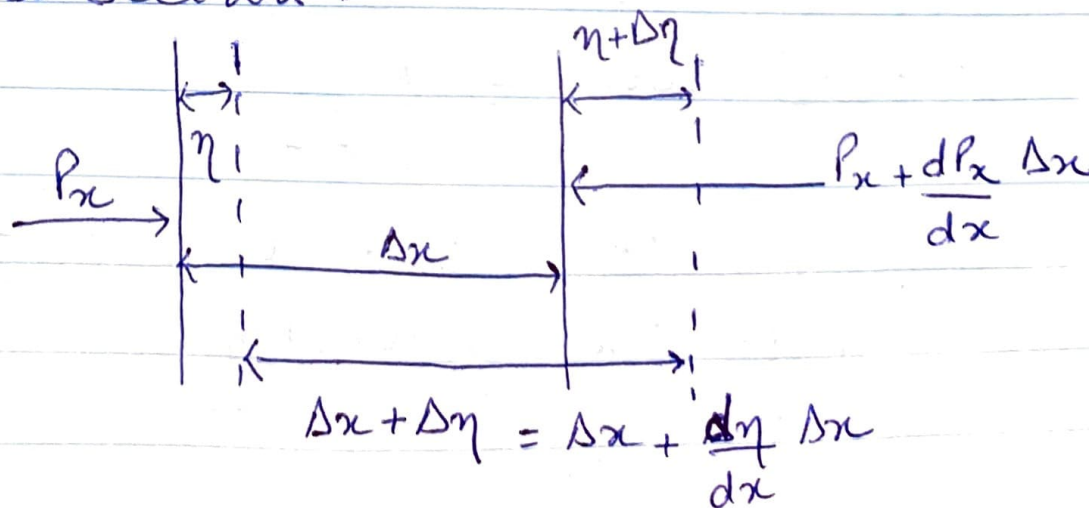 η+Δη
η
Pₓ
Pₓ + dPₓ/dx Δx
Δx
Δx + Δη = Δx + dη/dx Δx